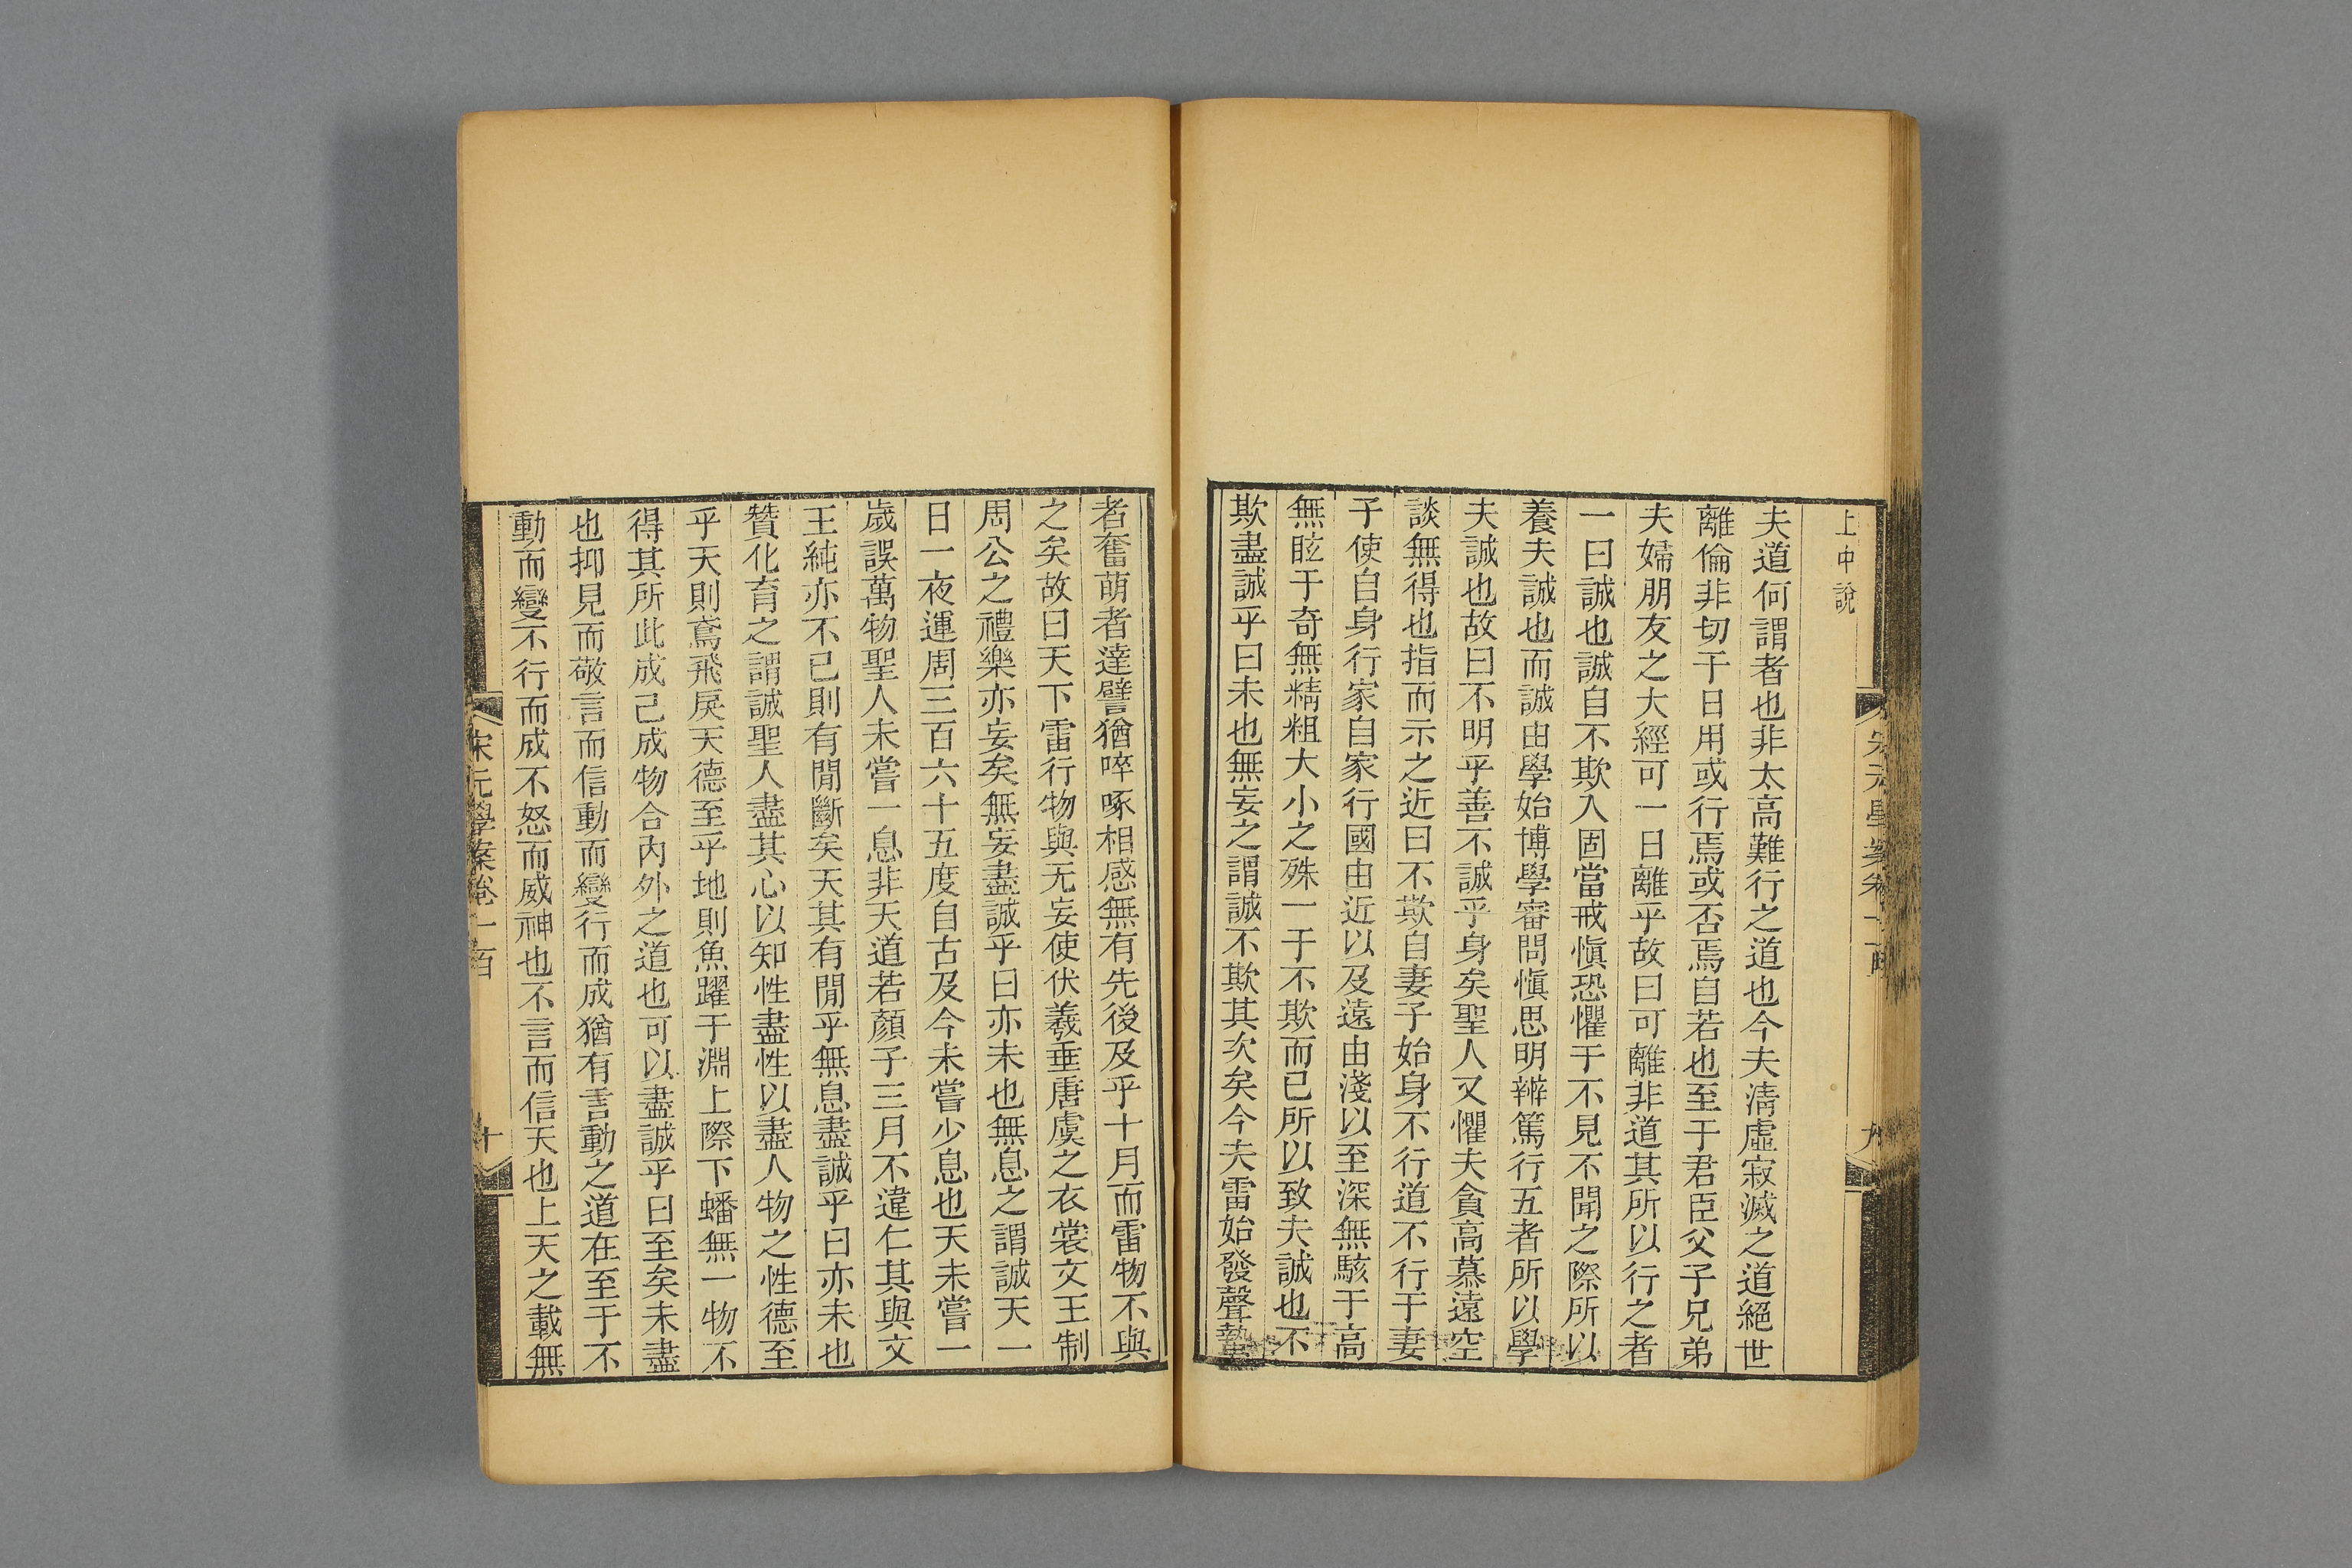 上中說
夫道何謂者也非太高難行之道也今夫淸虛寂滅之道絕世
離倫非切于日用或行焉或否焉自若也至于君臣父子兄弟
夫婦朋友之大經可一日離乎故曰可離非道其所以行之者
一曰誠也誠自不欺入固當戒愼恐懼于不見不聞之際所以
養夫誠也而誠由學始博學審問愼思明辨篤行五者所以學
夫誠也故曰不明乎善不誠乎身矣聖人又懼夫貪高慕遠空
談無得也指而示之近曰不欺自妻子始身不行道不行于妻
子使自身行家自家行國由近以及遠由淺以至深無駭于高
無眩于奇無精粗大小之殊一于不欺而已所以致夫誠也不
欺盡誠乎曰未也無妄之謂誠不欺其次矣今夫雷始發聲蟄
者奮萌者達譬猶啐啄相感無有先後及乎十月而雷物不與
之矣故曰天下雷行物與无妄使伏羲垂唐虞之衣裳文王制
周公之禮樂亦妄矣無妄盡誠乎曰亦未也無息之謂誠天一
日一夜運周三百六十五度自古及今未嘗少息也天未嘗一
歲誤萬物聖人未嘗一息非天道若顏子三月不違仁其與文
王純亦不已則有閒斷矣天其有閒乎無息盡誠乎曰亦未也
贊化育之謂誠聖人盡其心以知性盡性以盡人物之性德至
乎天則鳶飛戾天德至乎地則魚躍于淵上際下蟠無一物不
得其所此成己成物合內外之道也可以盡誠乎曰至矣未盡
也抑見而敬言而信動而變行而成猶有言動之道在至于不
動而變不行而成不怒而威神也不言而信天也上天之載無
宋元學案卷一百
十